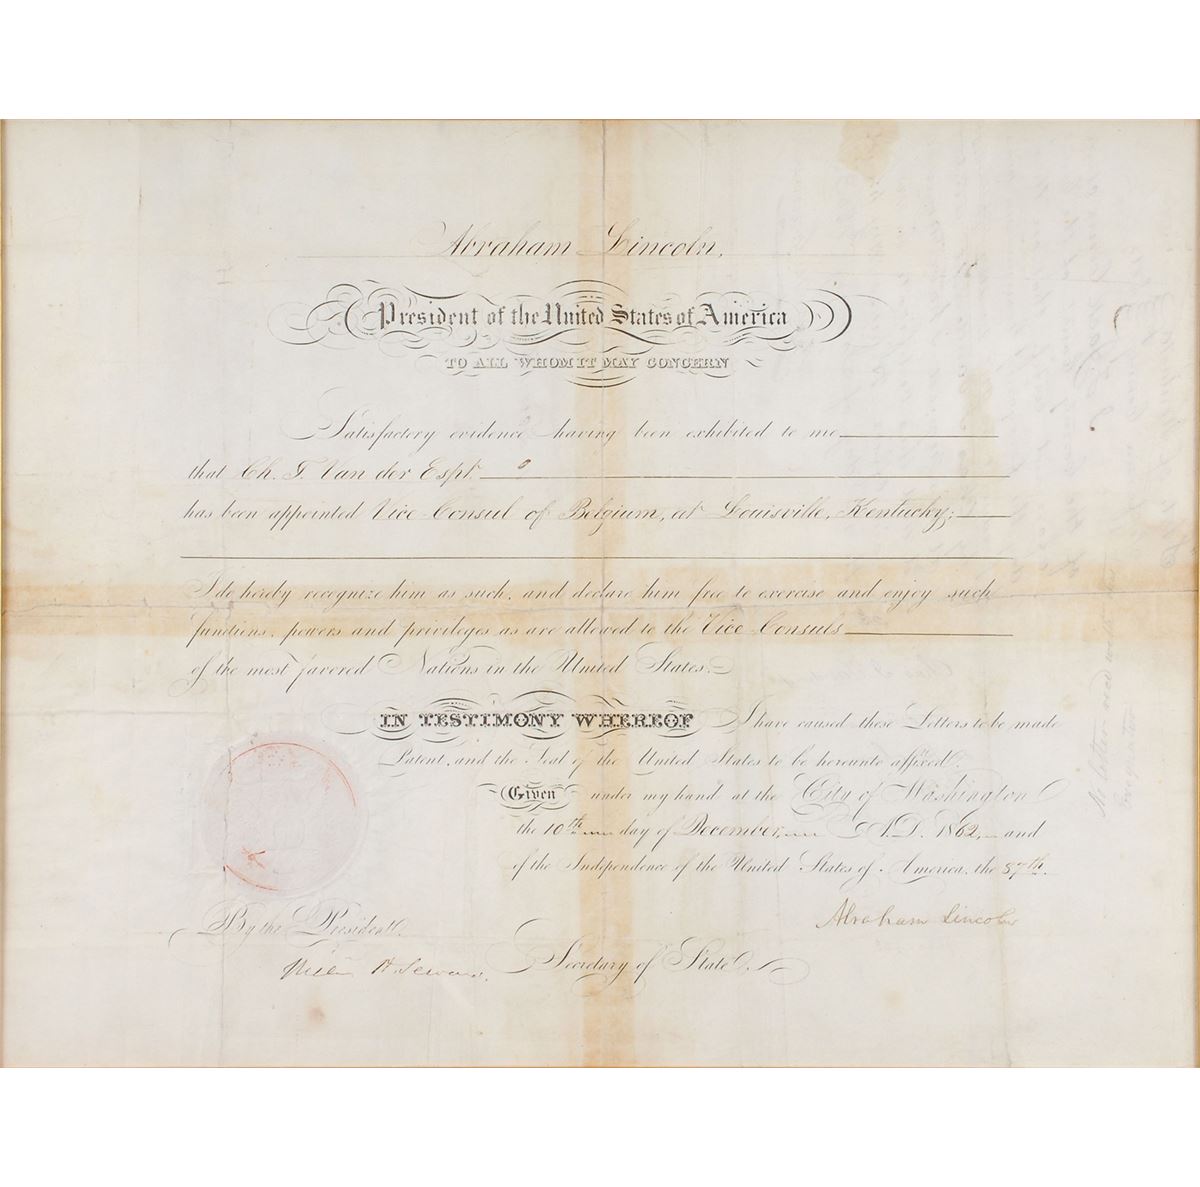 Abraham Lincoln,
President of the United States of America
TO ALL WHOM IT MAY CONCERN
Satisfactory evidence having been exhibited to me
that Ch. T. Van der Espt
has been appointed Vice Consul of Belgium, at Louisville, Kentucky;
I do hereby recognize him as such, and declare him free to exercise and enjoy such
functions, powers and privileges as are allowed to the Vice Consuls
of the most favored Nations in the United States.
IN TESTIMONY WHEREOF I have caused these Letters to be made
Patent, and the Seal of the United States to be hereunto affixed.
Given under my hand at the City of Washington
the 10th day of December, A.D. 1862, and
of the Independence of the United States of America, the 87th.
Abraham Lincoln
By the President.
William H Seward. Secretary of State.